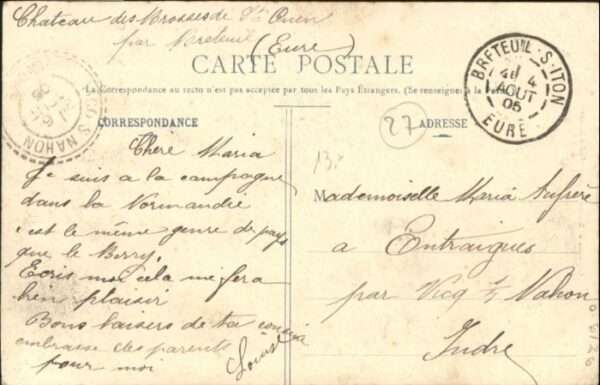 Chateau des Brosses de St Ouen
par Breteuil
(Eure)
CARTE POSTALE
La Correspondance au recto n'est pas acceptée par tous les Pays Étrangers. (Se renseigner à la
CORRESPONDANCE
ADRESSE
BRETEUIL-S-ITON
4
AOUT
05
EURE
S NAHON
27
13
Chère Maria
Je suis a la campagne
dans la Normandie
c'est le même genre de pays
que le Berry,
Ecris moi cela me fera
bien plaisir
Bons baisers de ta cousine
embrasse des parents
pour moi
Louise
Mademoiselle Maria Aufrère
a Entraigues
par Vicq s/ Nahon
Indre